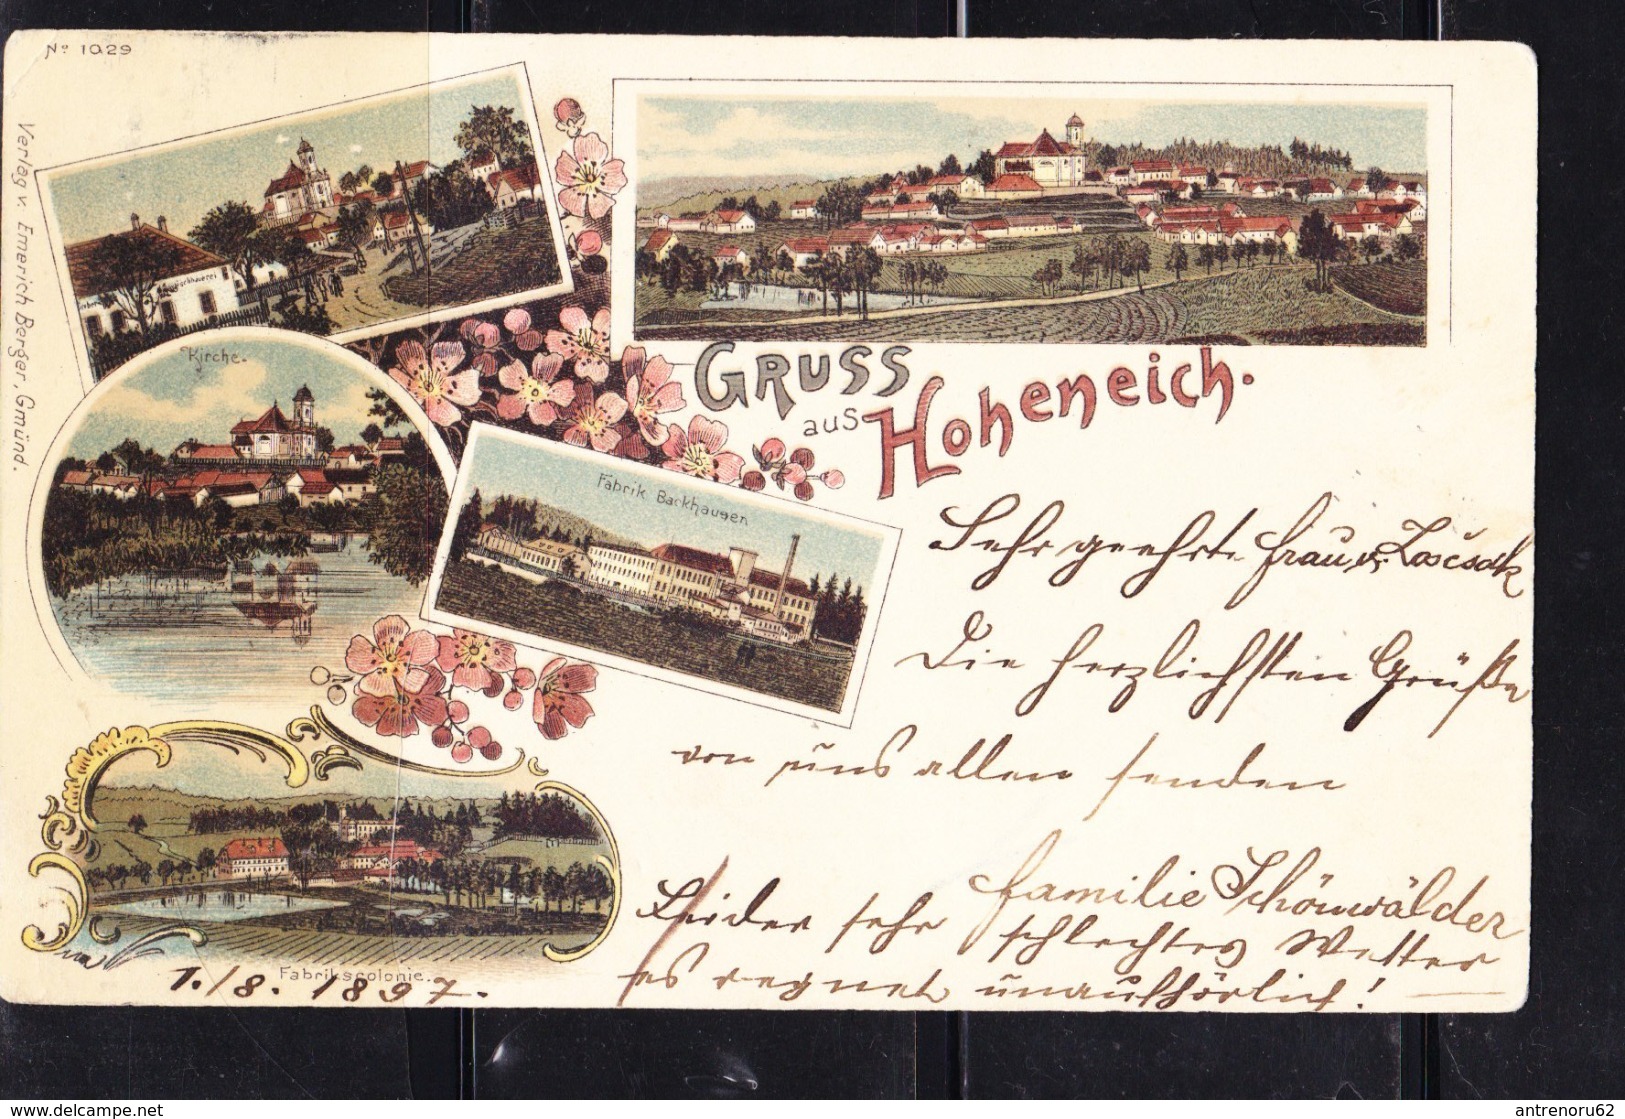 Nº 1029
Verlag v. Emerich Berger, Gmünd.
Kirche.
Fabrik Backhausen
Fabrikscolonie.
GRUSS
aus Hoheneich.
Sehr geehrte Frau v.
Die herzlichsten Grüße
von uns allen senden
Familie Schönwälder
Leider sehr schlechtes Wetter
es regnet unaufhörlich!
1./8. 1897.
www.delcampe.net
antrenoru62